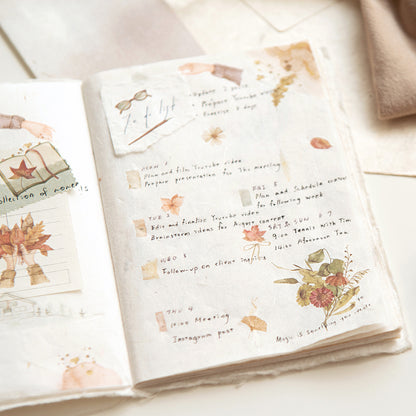 collection of moments
to do list
Update 2 posts
Prepare Youtube
Exercise 3 days
MON 1
Plan and film Youtube video
Prepare presentation for Thu meeting
TUE 2
Edit and finalize Youtube video
Brainstorm ideas for August content
WED 3
Follow-up on client
THU 4
10:00 Meeting
Instagram post
FRI 5
Plan and Schedule content
for following week
SAT 6 SUN 7
9:00 Tennis With Tim
14:00 Afternoon Tea
Magic is something you